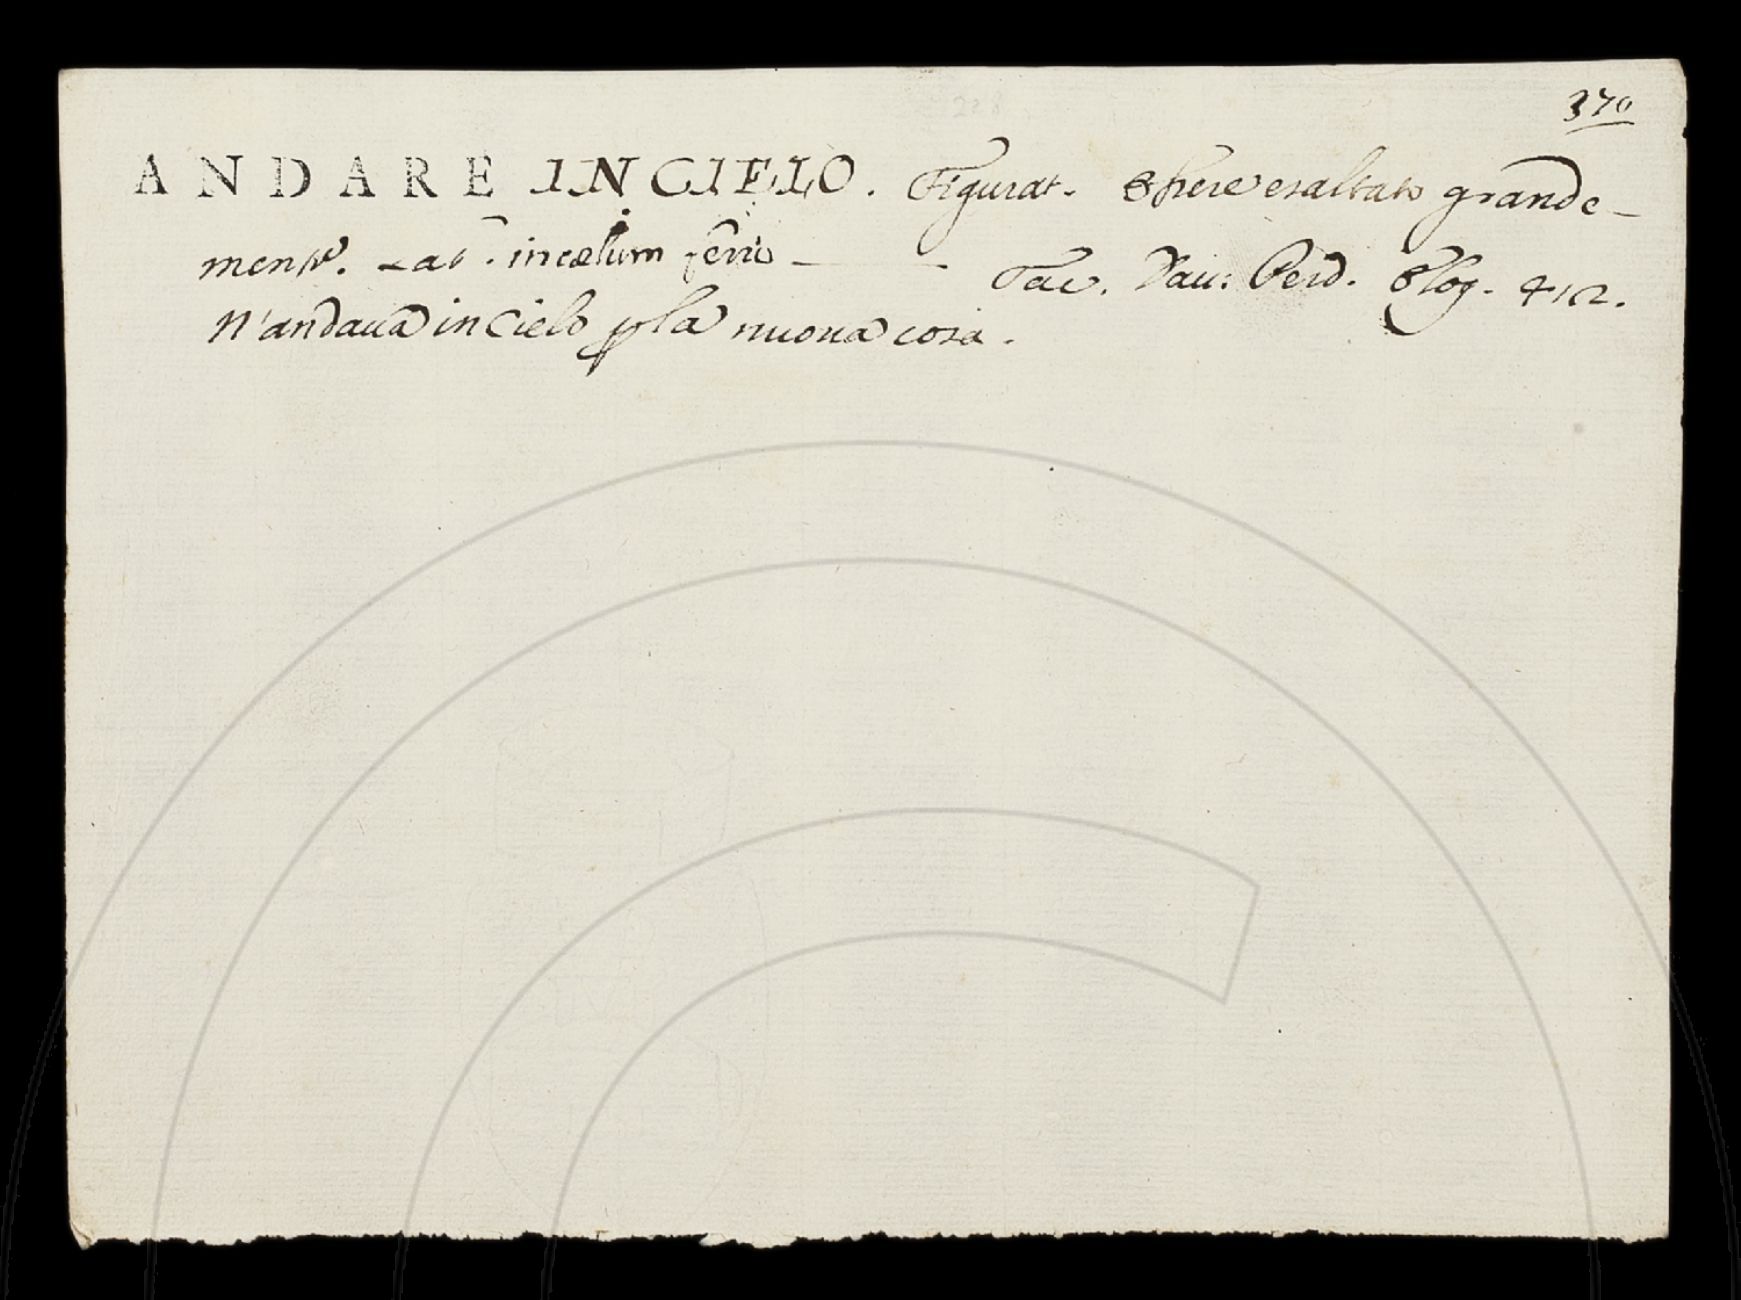 370
228
ANDARE IN CIELO. Figurat. Essere esaltato grande-
mente. Lat. in cælum ferri — — Tac. Dav: Perd. Eloq. 412.
N'andava in Cielo p la nuova cosa.